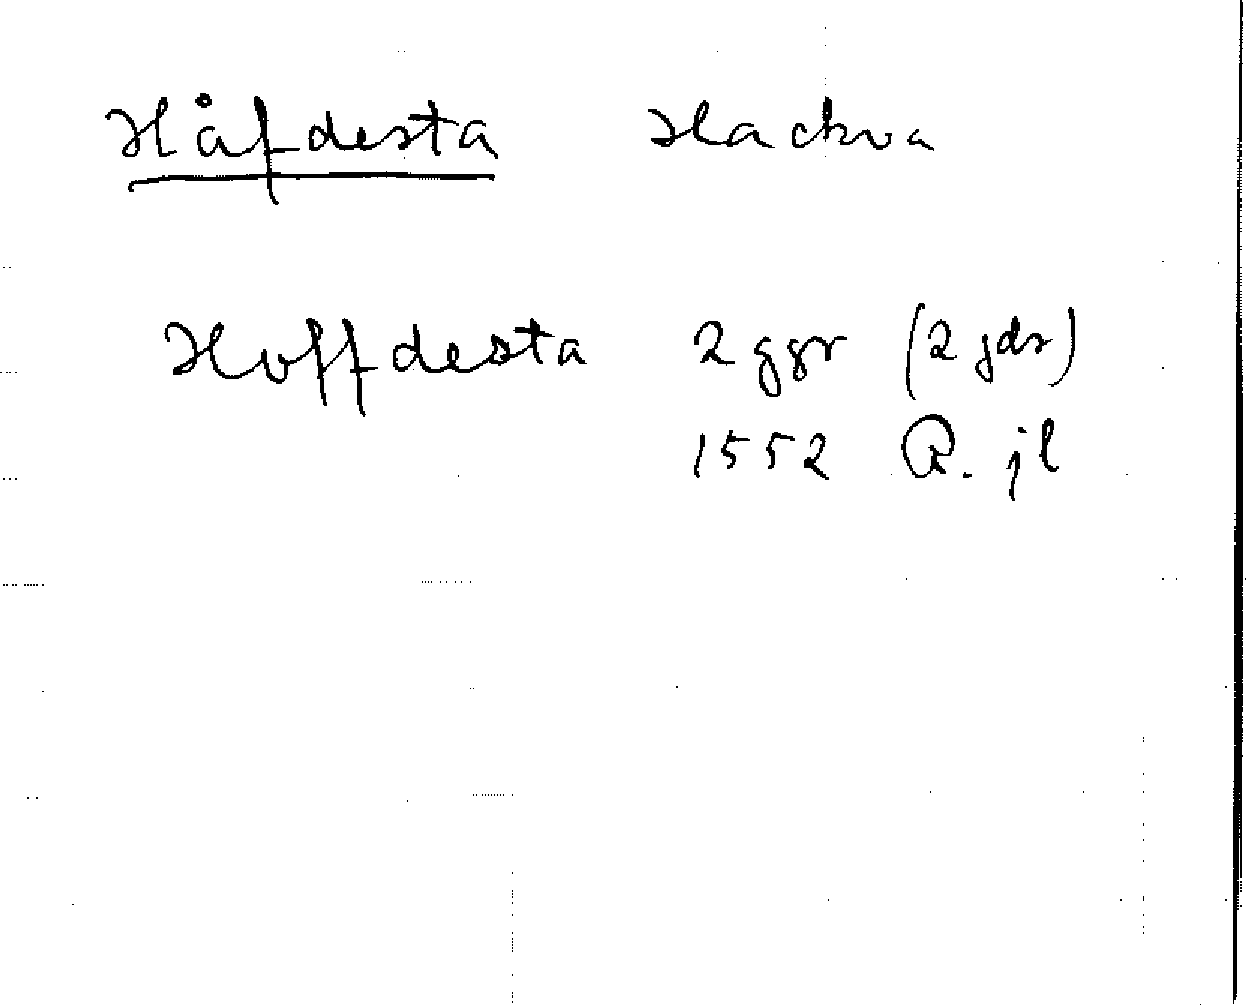 Håfdesta Hackva
Hoffdesta 2 ggr (2 jdr)
1552 R. jl